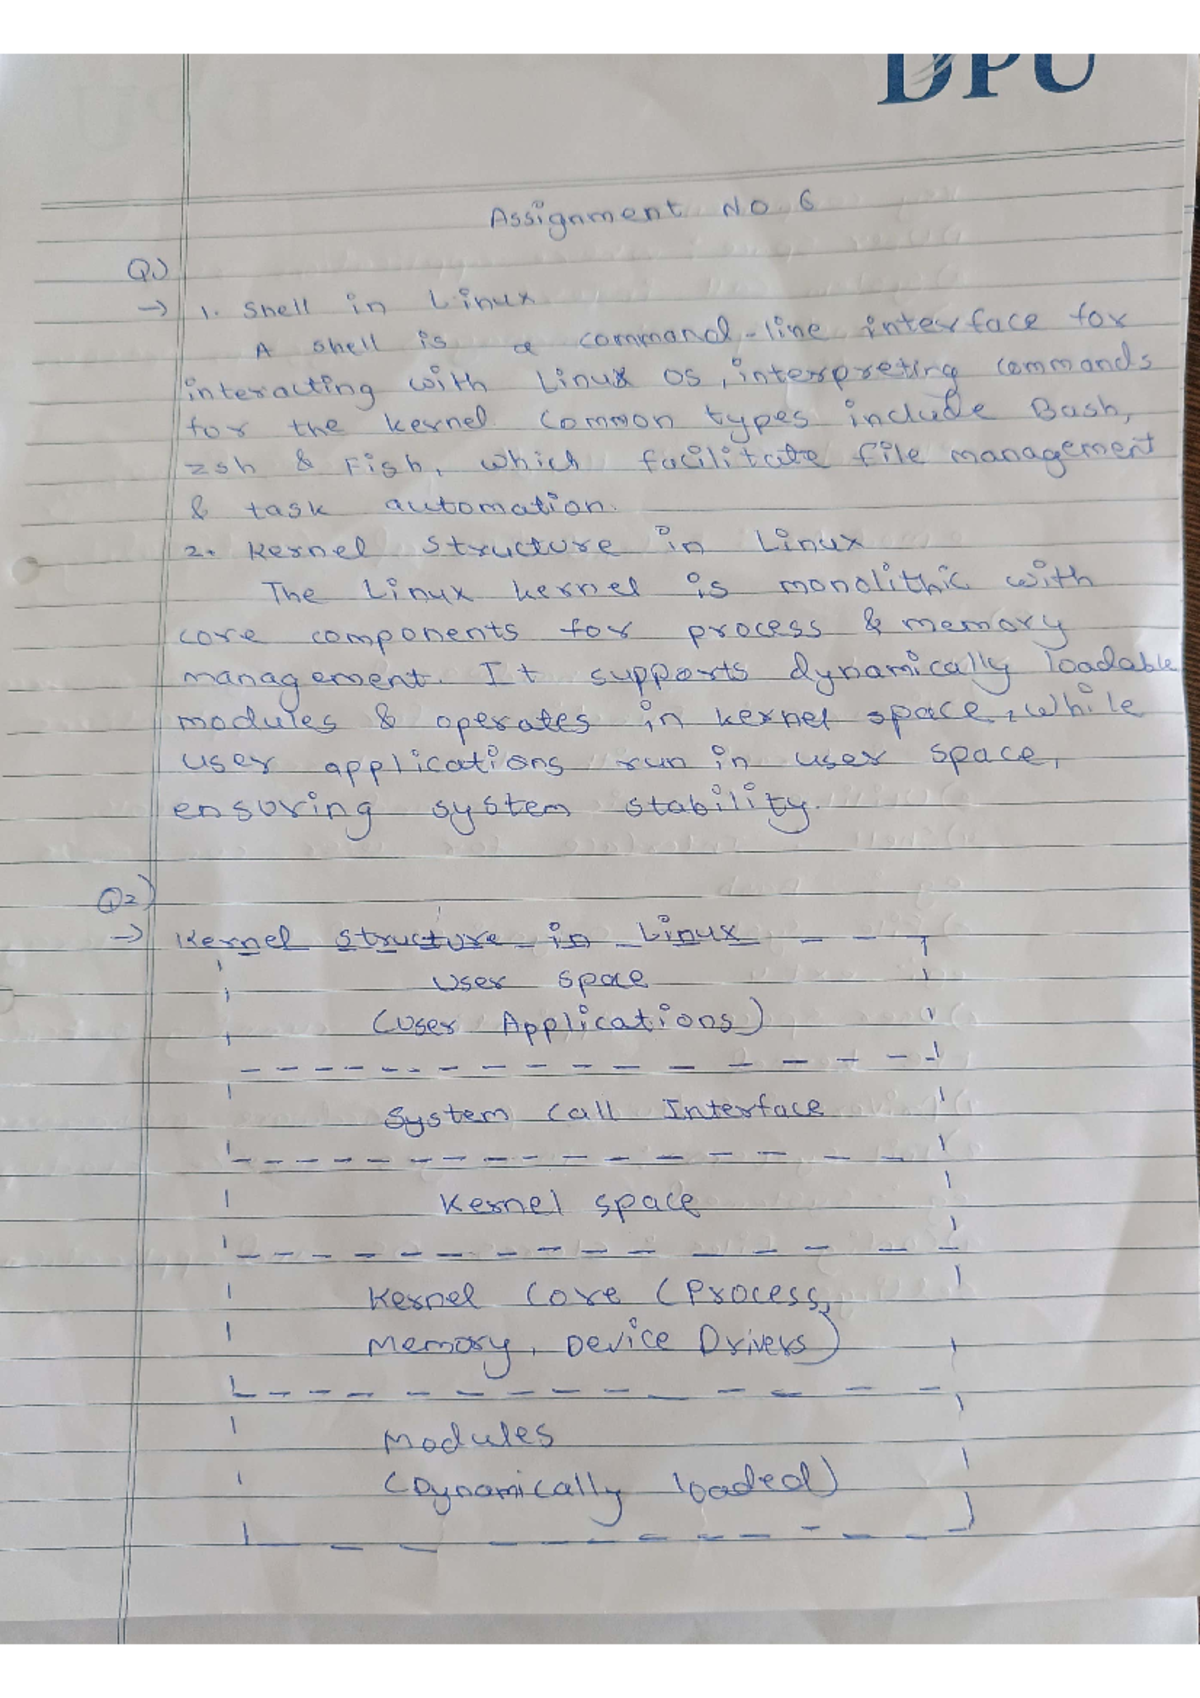 DPU
Assignment No 6
Q.)
→ 1. Shell in Linux
A shell is a command-line interface for
interacting with Linux OS, interpreting commands
for the kernel. Common types include Bash,
zsh & Fish, which facilitate file management
& task automation.
2. Kernel structure in Linux
The Linux kernel is monolithic with
core components for process & memory
management. It supports dynamically loadable
modules & operates in kernel space, while
user applications run in user space,
ensuring system stability.
Q2)
→ Kernel structure in Linux
User space
(User Applications)
System Call Interface
Kernel space
Kernel Core (Process,
Memory, Device Drivers)
Modules
(Dynamically loaded)